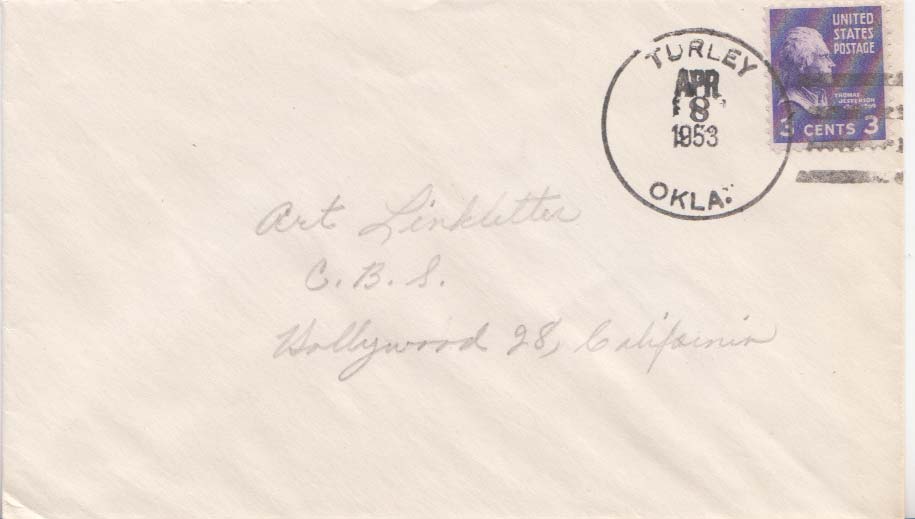 UNITED
STATES
POSTAGE
THOMAS
JEFFERSON
3 CENTS 3
TURLEY
APR
8
1953
OKLA.
Art Linkletter
C. B. S.
Hollywood 28, California